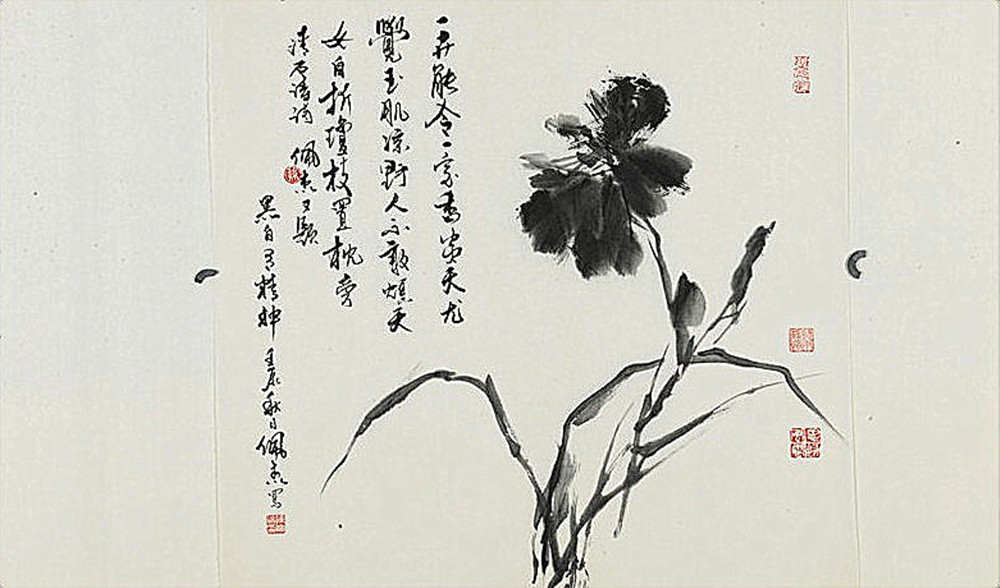 一卉能令一室香炎天尤
覺玉肌涼野人不敢煩天
女自折瓊枝置枕旁
清石濤 佩杰又題
黑白有精神 壬辰秋日佩杰寫